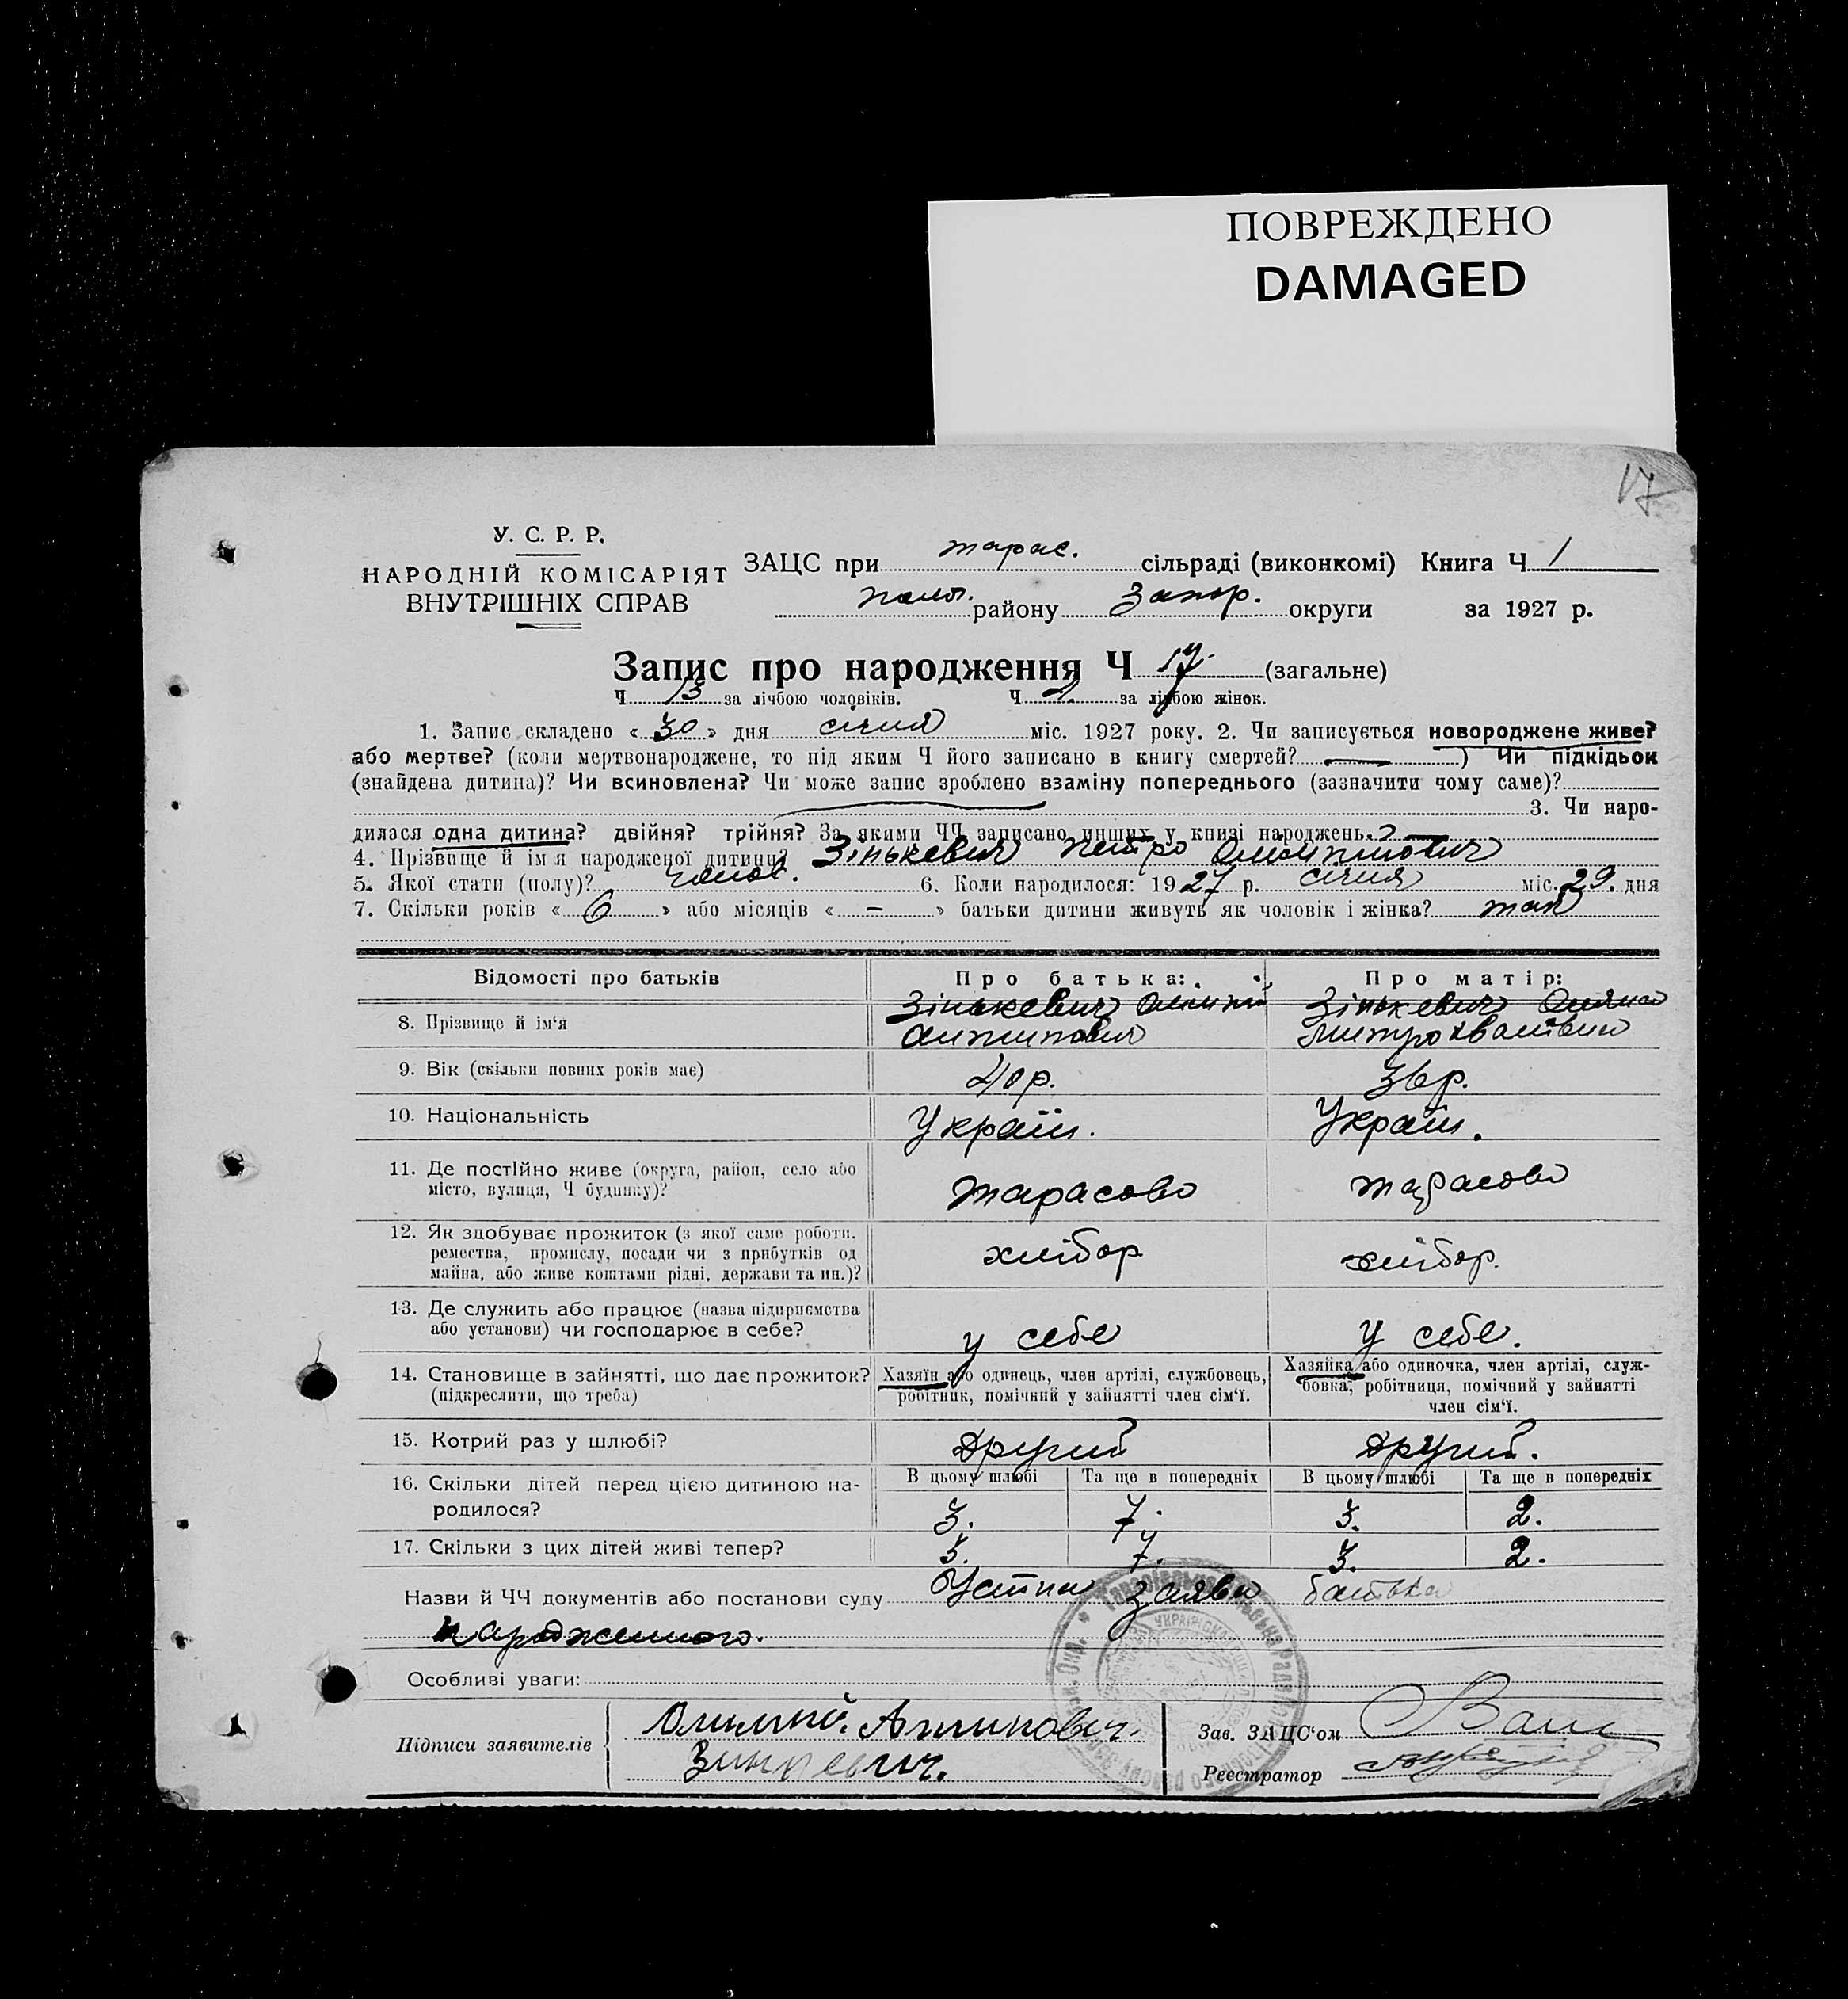 ПОВРЕЖДЕНО
DAMAGED
17
У. С. Р. Р.
НАРОДНІЙ КОМІСАРІЯТ
ВНУТРІШНІХ СПРАВ
ЗАЦС при тарас. сільраді (виконкомі) Книга Ч 1
району Запор. округи за 1927 р.
Запис про народження Ч 17 (загальне)
Ч 13 за лічбою чоловіків. Ч за лічбою жінок.
1. Запис складено « 30 » дня січня міс. 1927 року. 2. Чи записується новороджене живе?
або мертве? (коли мертвонароджене, то під яким Ч його записано в книгу смертей? — ) Чи підкідьок
(знайдена дитина)? Чи всиновлена? Чи може запис зроблено взаміну попереднього (зазначити чому саме)?
3. Чи наро-
дилася одна дитина? двійня? трійня? За якими ЧЧ записано инших у книзі народжень.
4. Прізвище й ім'я народженої дитини? Зінькевич Петро Олимпович
5. Якої стати (полу)? чолов. 6. Коли народилося: 1927 р. січня міс. 29. дня
7. Скільки років « 6 » або місяців « - » батьки дитини живуть як чоловік і жінка? так
Відомості про батьків Про батька: Про матір:
8. Прізвище й ім'я Зінькевич Олимпій Зінькевич
Антипович Митрохванівна
9. Вік (скільки повних років має) 40 р. 36 р.
10. Національність Україн. Україн.
11. Де постійно живе (округа, район, село або
місто, вулиця, Ч будинку)? Тарасово Тарасово
12. Як здобуває прожиток (з якої саме роботи,
ремества, промислу, посади чи з прибутків од
майна, або живе коштами рідні, держави та ин.)? хлібор хлібор.
13. Де служить або працює (назва підприємства
або установи) чи господарює в себе? у себе у себе.
14. Становище в зайнятті, що дає прожиток?
(підкреслити, що треба)
Хазяїн або одинець, член артілі, службовець,
робітник, помічний у зайнятті член сім'ї.
Хазяйка або одиночка, член артілі, служ-
бовка, робітниця, помічний у зайнятті
член сім'ї.
15. Котрий раз у шлюбі? другий другий.
В цьому шлюбі Та ще в попередніх В цьому шлюбі Та ще в попередніх
16. Скільки дітей перед цією дитиною на-
родилося? 3. 7. 3. 2.
17. Скільки з цих дітей живі тепер? 3. 7. 3. 2.
Назви й ЧЧ документів або постанови суду Устна заява батька
народженного.
Особливі уваги:
Підписи заявителів Олимпій. Антипович.
Зинкевич.
Зав. ЗАЦС'ом
Реєстратор